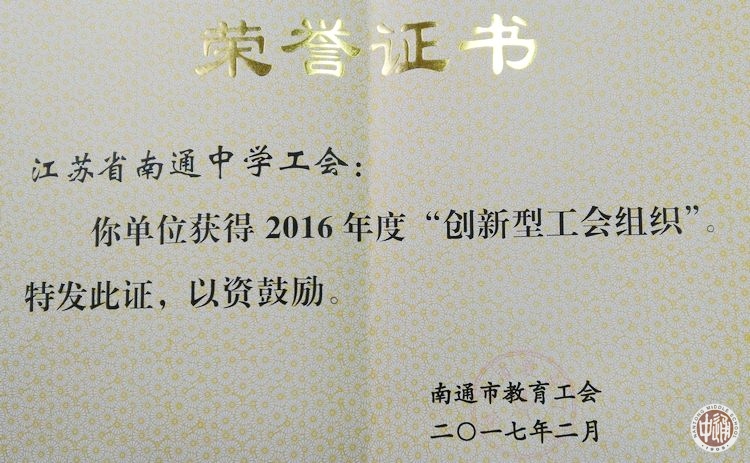 荣誉证书
江苏省南通中学工会：
你单位获得 2016 年度“创新型工会组织”。
特发此证，以资鼓励。
南通市教育工会
二〇一七年二月